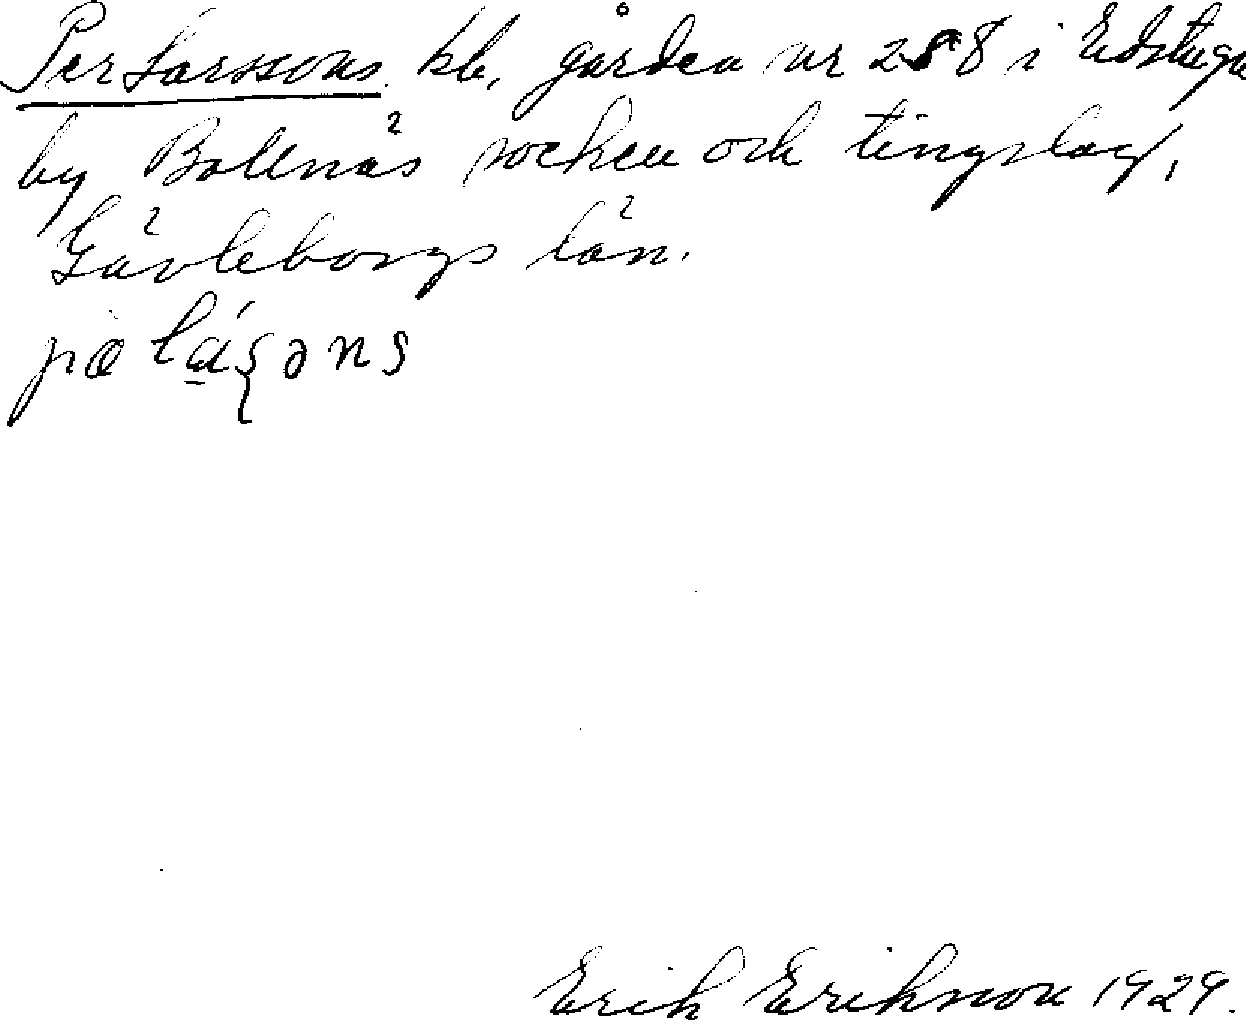 Per Larssons kb, gården nr 258 i Edstuga
by Bollnäs socken och tingslag,
Gävleborgs län.
Erik Erikson 1929.